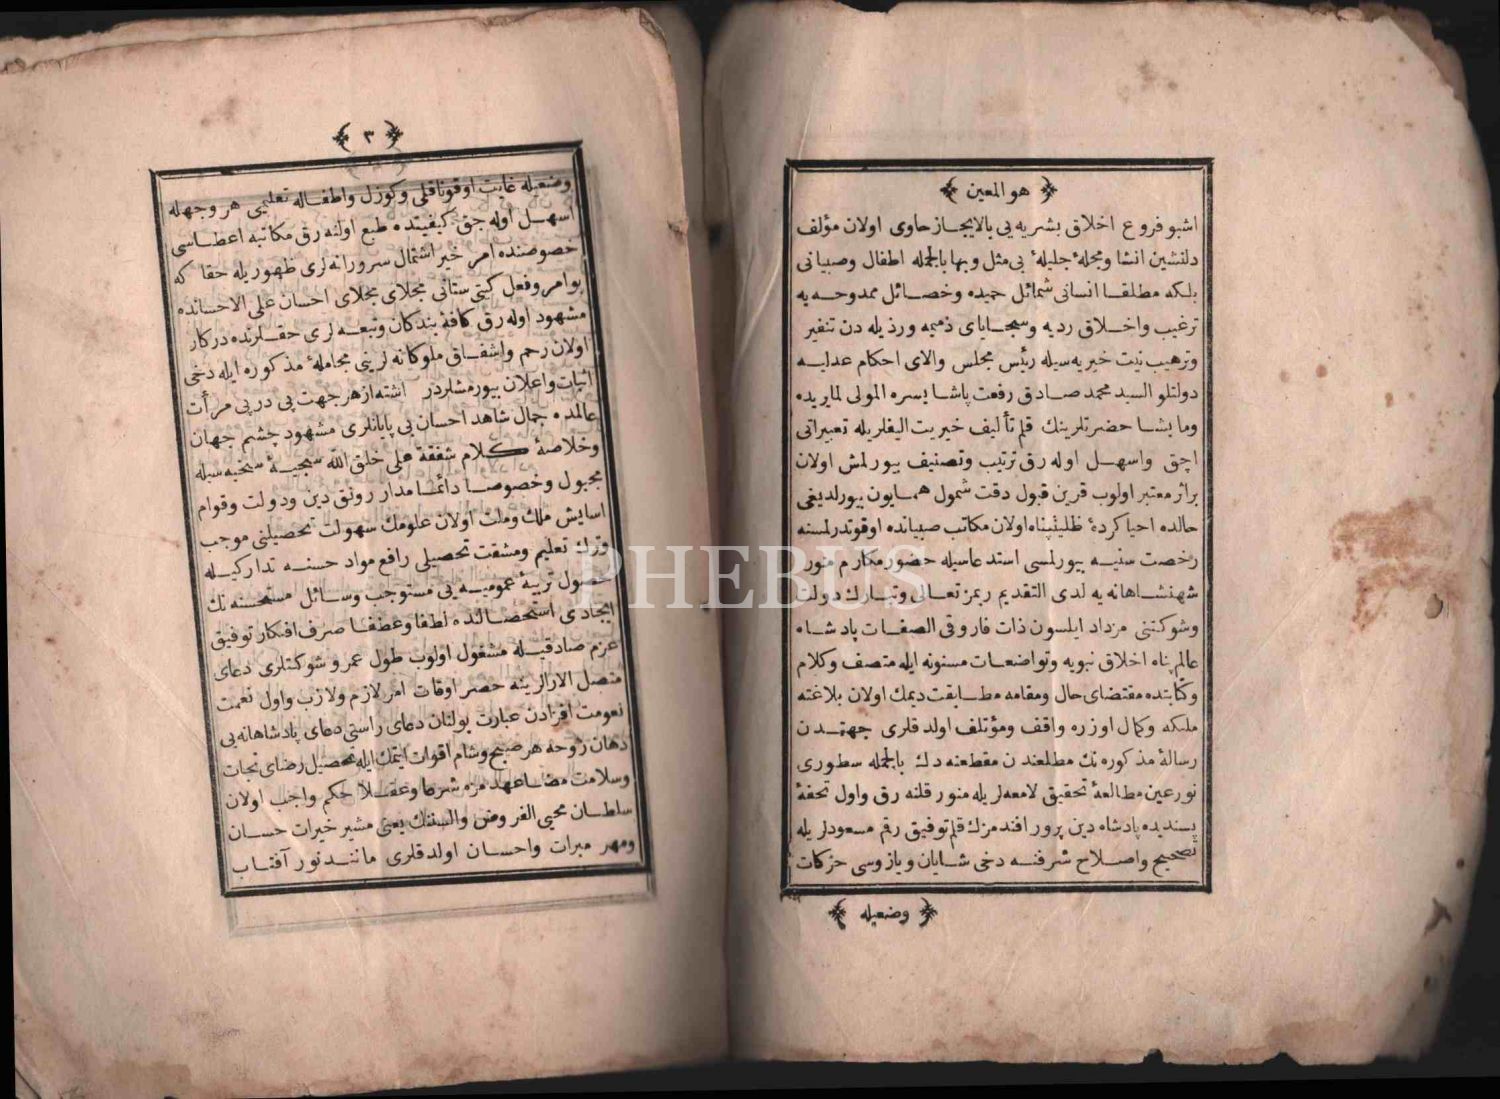 هو المعین
اشبو فروع اخلاق بشریه یی بالایجاز حاوی اولان مؤلف
دلنشین انشا ومجلهٔ جلیلهٔ بی مثل وبها بالجمله اطفال وصبیانی
بلکه مطلقا انسانی شمائل حمیده وخصائل ممدوحه یه
ترغیب واخلاق ردیه وسجایای ذمیمه ورذیله دن تنفیر
وترهیب نیت خیریه سیله رئیس مجلس والای احکام عدلیه
دولتلو السید محمد صادق رفعت پاشا یسره المولی لما یریده
وما یشا حضرتلرینك قلم تألیف خیریت الیفلریله تعبیراتی
اچق واسهل اوله رق ترتیب وتصنیف بیورلمش اولان
براثر معتبر اولوب قرین قبول دقت شمول همایون بیورلدیغی
حالده احیا کردهٔ ظلیلپناه اولان مکاتب صبیانده اوقوتدرلمسنه
رخصت سنیه بیورلمسی استدعاسیله حضور مکارم منور
شهنشاهانه یه لدی التقدیم ریمز تعالی وتبارك دولت
وشوکتنی مزداد ایلسون ذات فاروقی الصفات پادشاه
عالمپناه اخلاق نبویه وتواضعات مسنونه ایله متصف وکلام
وکتابتده مقتضای حال ومقامه مطابقت دیمك اولان بلاغته
ملکه وکمال اوزره واقف ومؤتلف اولدقلری جهتدن
رسالهٔ مذکوره نك مطلعندن مقطعنه دك بالجمله سطوری
نور عین مطالعهٔ تحقیق لامعه لریله منور قلنه رق واول تحفهٔ
پسندیده پادشاه دین پرور افندمزك قلم توفیق رقم مسعودلریله
تصحیح واصلاح شرفنه دخی شایان ویازوسی حرکات
وضعیله
٣
وضعیله غایت اوقوناقلی وکوزل واطفاله تعلیمی هر وجهله
اسهل اوله جق کیفیتده طبع اولنه رق مکاتبه اعطاسی
خصوصنده امر خیر اشتمال سرورانه لری ظهوریله حقا که
بوامر وفعل کیتی ستانی مجلای مجلای احسان علی الاحسانده
مشهود اوله رق کافهٔ بندکان وتبعه لری حقلرنده درکار
اولان رحم واشفاق ملوکانه لرینی مجاملهٔ مذکوره ایله دخی
اثبات واعلان بیورمشلردر اشته از هر جهت پی در پی مرأت
عالمده جمال شاهد احسان بی پایانلری مشهود چشم جهان
وخلاصهٔ کلام شفقة علی خلق الله سجیهٔ سخیه سیله
مجبول وخصوصا دائما مدار رونق دین ودولت وقوام
اسایش ملك وملت اولان علومك سهولت تحصیلنی موجب
وترك تعلیم ومشقت تحصیلی رافع مواد حسنه تدارکیله
حصول تربیهٔ عمومیه یی مستوجب وسائل مستحسنه نك
ایجادی استحصالنده لطفا وعطفا صرف افکار توفیق
عزم صادقیله مشغول اولوب طول عمر وشوکتلری دعای
متصل الارالرینه حصر اوقات امر لازم ولازب واول نعمت
نعومت افزادن عبارت بولنان دعای راستی دعای پادشاهانه یی
دهان روحه هر صبح وشام اقوات ایتمك ایله تحصیل رضای نجات
وسلامت مضاعهد مزه شرعا وعقلا حکم واجب اولان
سلطان محیی الفروض والسننك یعنی مشیر خیرات حسان
ومهر مبرات واحسان اولدقلری ماننـد نور آفتاب
PHEBUS